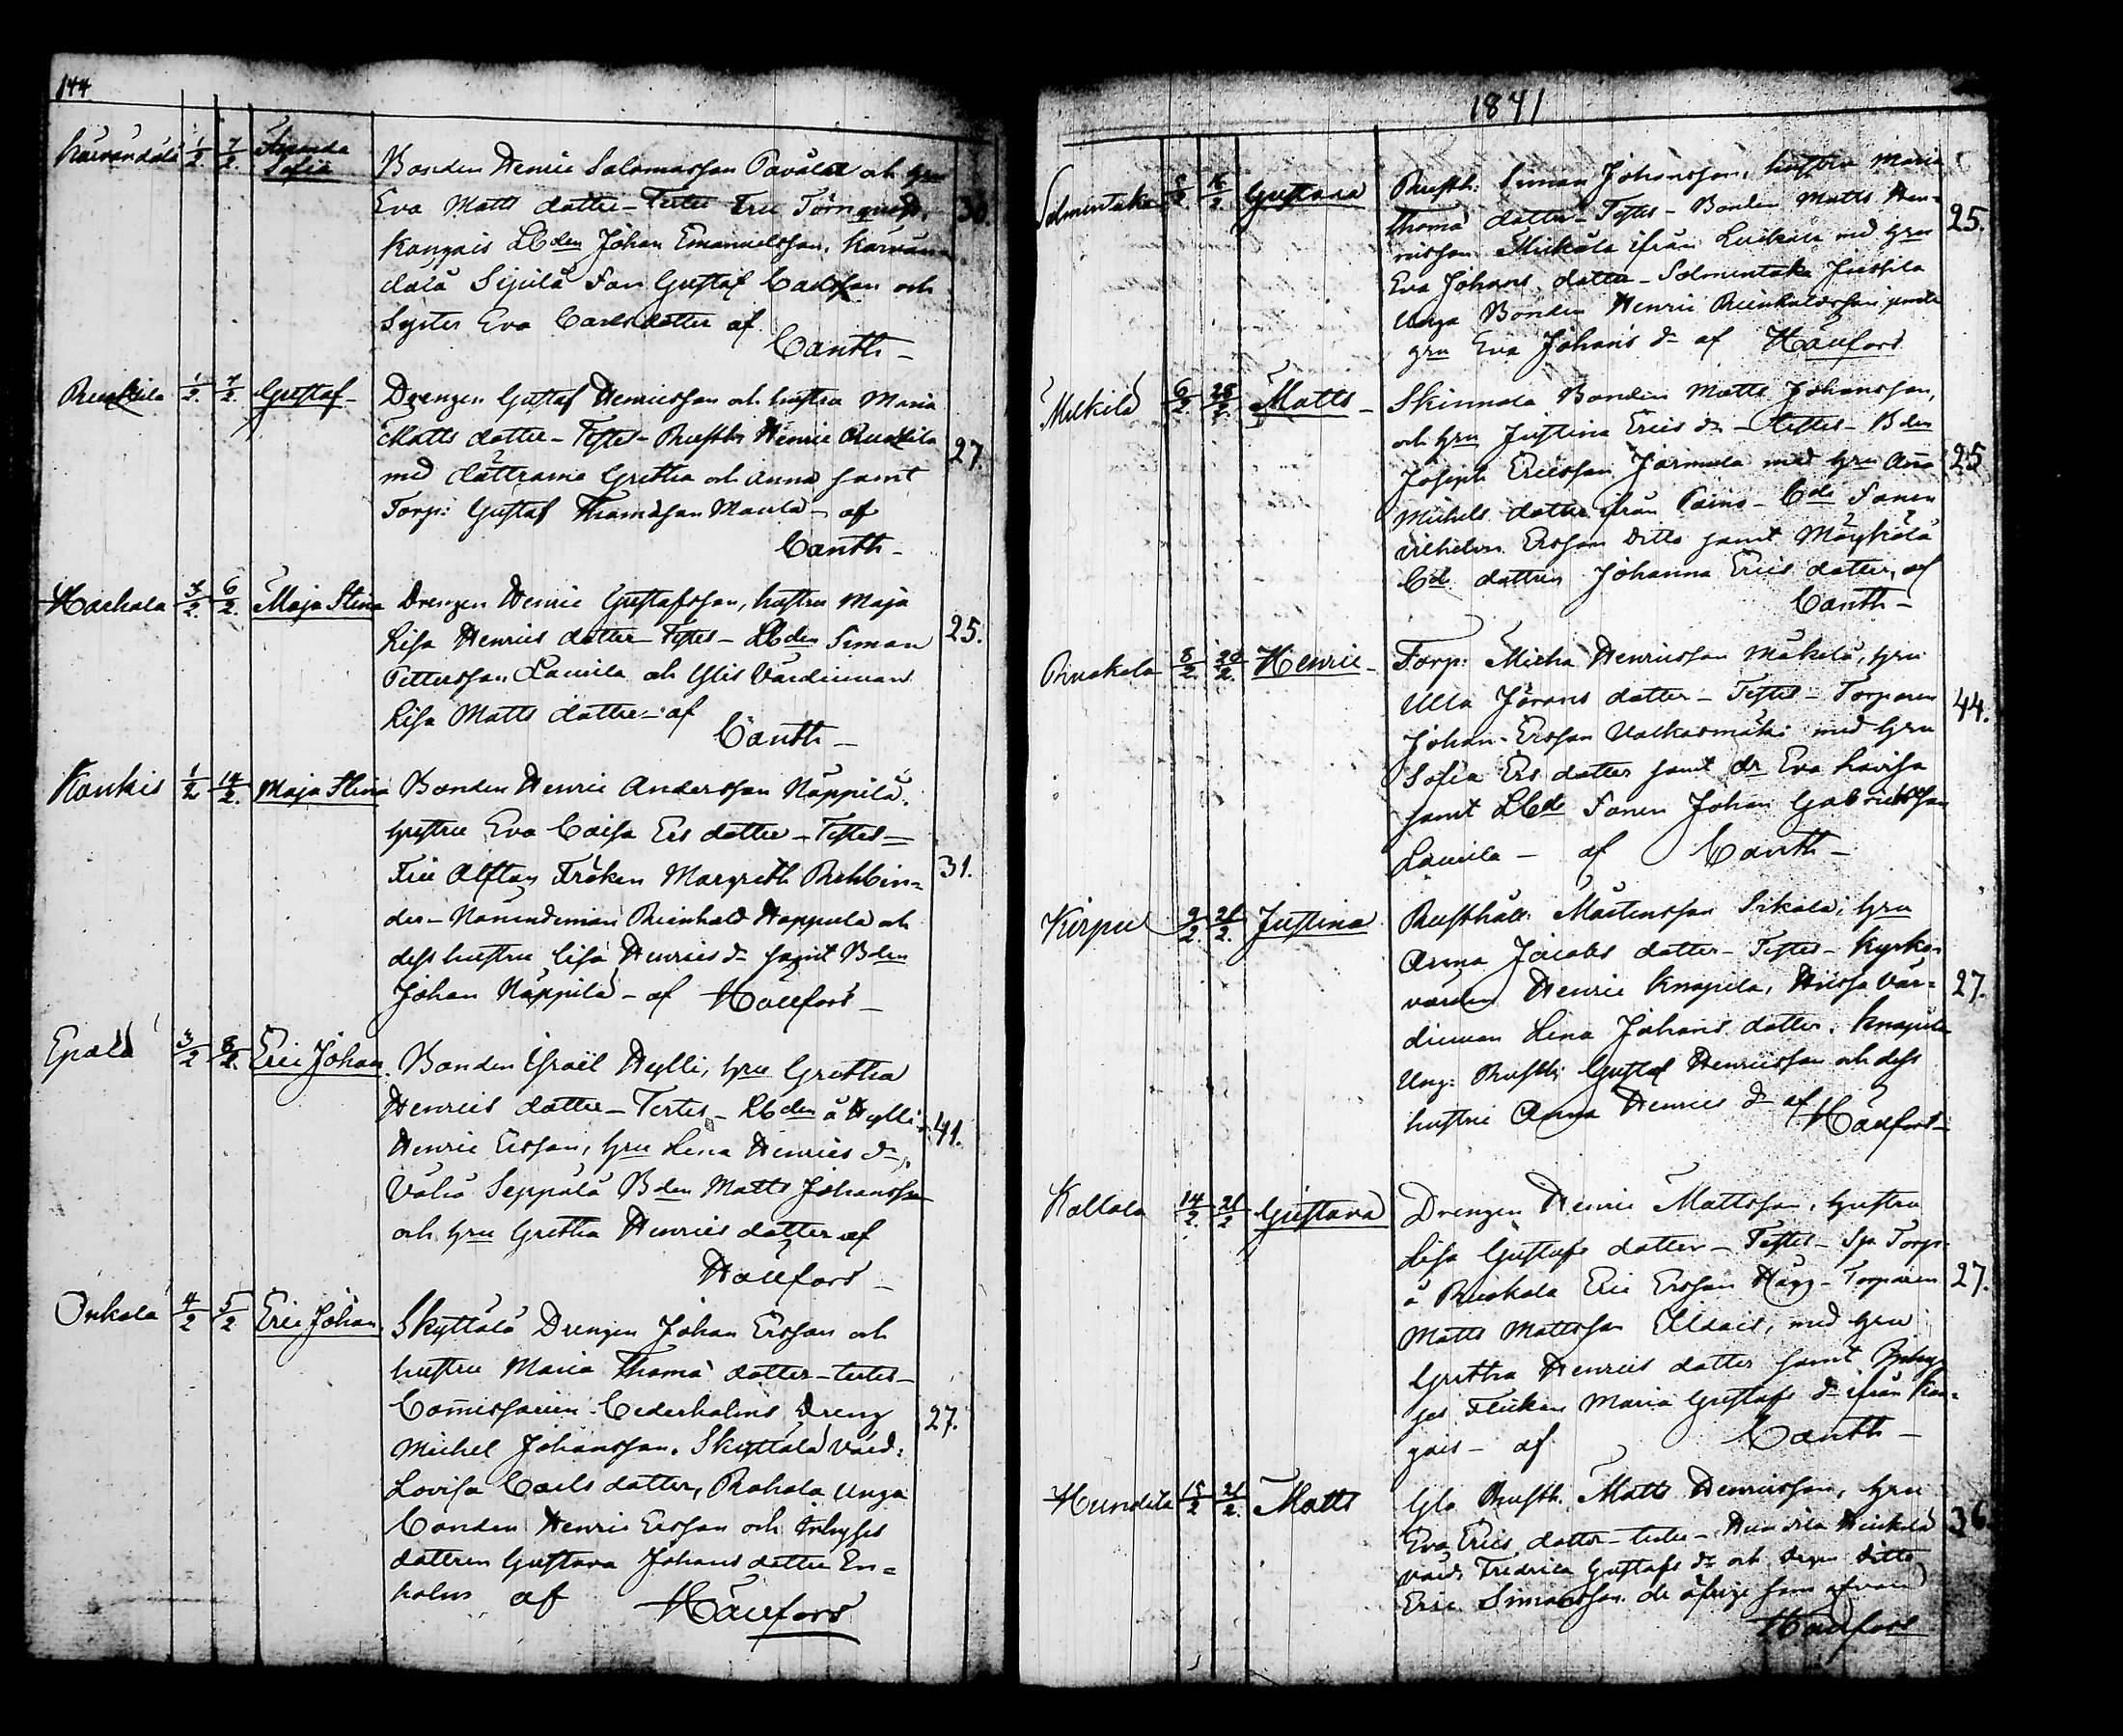 144
Karvandala 1/2 7/2 Amanda
Sofia
Bonden Henric Salomansson Pavola och hru
Eva Matts dotter – Testes Fru Törnqvist,
Kangais Lbden Johan Emanuelsson. Karvan
dala Sipilä Son Gustaf Carlsson och
Syster Eva Carls dotter af
Canth –
30.
1/2 7/2 Gustaf –
Drengen Gustaf Henricsson och hustru Maria
Matts dotter – Testes – Rusth: Henric
med döttrarna Gretha och Anna samt
Torp: Gustaf Thomasson Maula – af
Canth –
27.
3/2 6/2 Maja Stina
Drengen Henric Gustafsson, hustru Maja
Lisa Henrics dotter – Testes – Lbden Simon
Pettersson Laurila och Ylis Värdinnan
Lisa Matts dotter – af
Canth –
25.
Konkis 1/2 14/2 Maja Stina
Bonden Henric Andersson Näppilä,
hustru Eva Caisa Ers dotter – Testes –
Fru Alftan Fröken Margreth Rehbin=
der – Nämndeman Reinhold Hoppula och
dess hustru Lisa Henrics dr samt Bden
Johan Näppilä – af Häufors –
31.
Epälä 3/2 8/2 Eric Johan
Bonden Israël Hylli, hru Gretha
Henrics dotter – Testes – Lbden å Hylli
Henric Ersson, hru Lena Henrics dr,
Vähä Seppälä Bden Matts Johansson
och hru Gretha Henrics dotter af
Häufors –
41.
Onkala 4/2 5/2 Eric Johan
Skyttälä Drengen Johan Ersson och
hustru Maria Thomæ dotter – testes –
Comissarien Cederholms Dreng
Michel Johansson. Skyttälä värd:
Lovisa Carls dotter, Rahola Unga
Bonden Henric Ersson och Inhyses
dottren Gustava Johans dotter En=
holm af Häufors
27.
1841
Salmentaka 5/2 16/2 Gustava
Rusth: Simon Johansson, hustru Maria
Thomæ dotter – Testes – Bonden Matts Hen=
ricsson Mickola ifrån med hru
Eva Johans dotter – Salmentaka Jussila
Unga Bonden Henric Reinholdsson jemte
hru Eva Johans dr af Häufors
25.
Mickilä 6/2 28/2 Matts –
Skinnala Bonden Matts Johansson,
och hru Justina Erics dr – testes – Bden
Joseph Ericsson Jarmula med hru Anna
Michels dotter ifrån – Bde Sonen
Vilhelm Ersson ditto samt Mäyhälä
Bde dottren Johanna Erics dotter, af
Canth –
25
Ruokola 8/2 20/2 Henric –
Torp: Micha Henricsson Mäkelä, hru
Ulla Jörans dotter – Testes – Torparen
Johan Ersson Valkasmäki med hru
Sofia Ers dotter samt dr Eva Lovisa
samt Lbde Sonen Johan Gabrielsson
Laurila – af Canth –
44.
Kirpu 9/2 21/2 Justina
Rusthåll: Mårtensson Sikala, hru
Anna Jacobs dotter – Testes – Kyrko
värden Henric Knapila, Hiissa vär=
dinnan Lena Johans dotter. Knapila
Ung: Rusth: Gustaf Henricsson och dess
hustru Anna Henrics dr af Häufors –
27.
Kallala 14/2 21/2 Gustava
Drengen Henric Mattsson, hustru
Lisa Gustafs dotter – Testes – Sp Torp
å Ruokola Eric Ersson Hägg – Torparen
Matts Mattsson, med hru
Gretha Henrics dotter samt Inhy
ses Flickan Maria Gustafs dr ifrån Kan=
gais – af Canth –
27.
Hundila 15/2 21/2 Matts
Gla Rusth. Matts Henricsson, hru
Eva Erics dotter – testes – Hundila
värd: Fredrica Gustafs dr och degen ditto
Eric Simonsson. de öfrige som ofvan
Häufors
36.